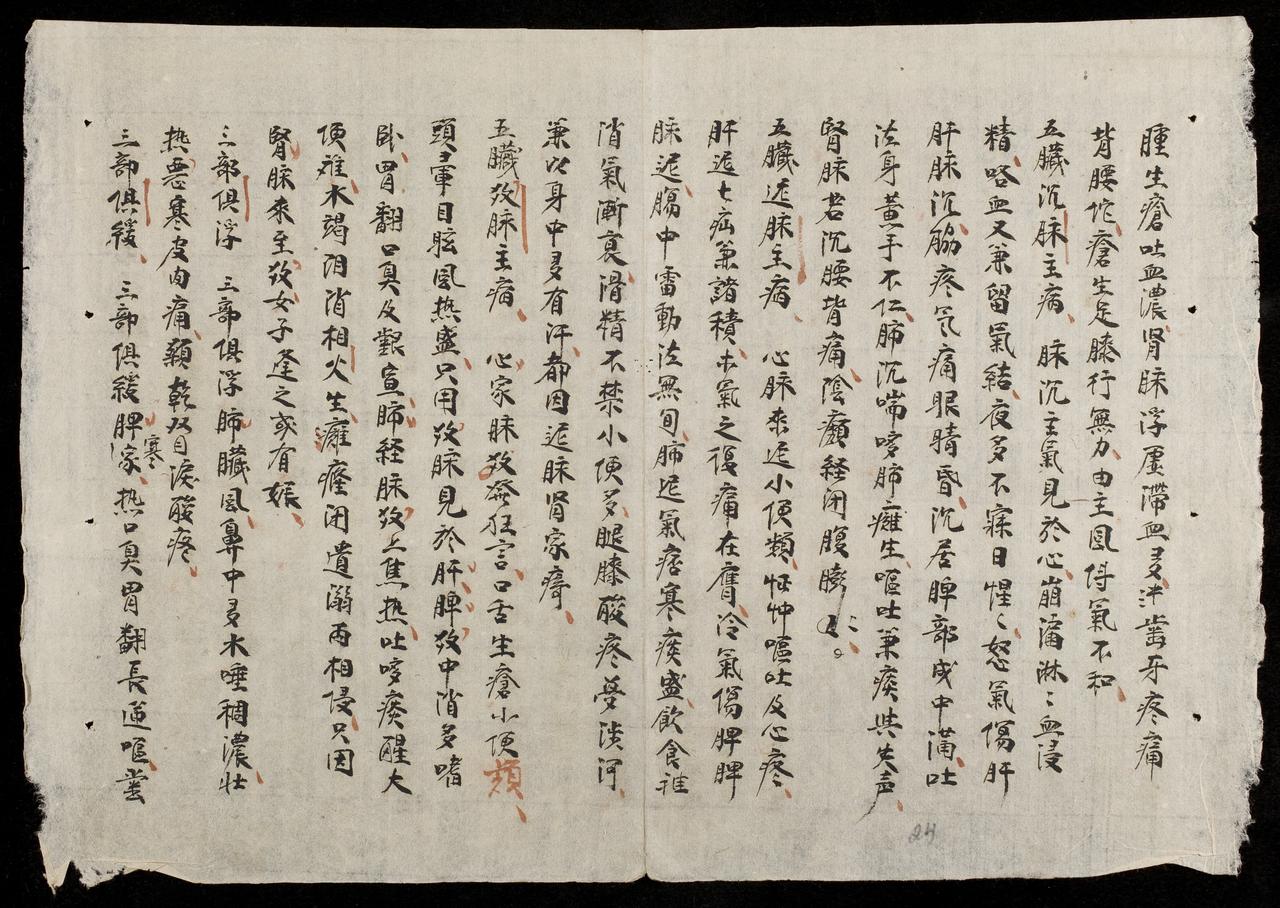 腫生瘡吐血濃肾脉浮虛滯血多沖齒牙疼痛
背腰佗瘡生足膝行無力由主風侍氣不和
五臟沉脉主病 脉沉主氣見於心崩漏淋〻血浸
精咯血又兼留氣結夜多不寐日惺〻怒氣傷肝
肝脉沉脇疼气痛眼睛昏沉居脾部成中满吐
法身黄手不仁肺沉喘咳肺癰生嘔吐兼痰共失声
腎脉若沉腰背痛陰癩経闭腹膨
五臟迟脉主病 心脉来迟小便頻怔忡嘔吐及心疼
肝迟七疝兼諸積木氣之復痛在膺冷氣傷脾脾
脉迟腸中雷動法無旬肺迟氣痞寒痰盛飲食难
消氣漸衰滑精不禁小便多腿膝酸疼夢涉河
兼以身中多有汗都因迟脉肾家疴
五臟数脉主病 心家脉数發狂言口舌生瘡小便頻
頭軍目眩風热盛只用数脉見於肝脾数中消多嗜
卧胃翻口臭及齦宣肺経脉数上焦热吐咳痰醒大
便难水竭阴消相火生癰痓闭遺溺两相侵只因
腎脉来至数女子逢之或有娠
三部俱浮 三部俱浮肺臟風鼻中多水唾稠濃壮
热惡寒皮肉痛顙乾双目淚酸疼
三部俱緩 三部俱緩脾家热口臭胃翻長逆嘔當
寒
24